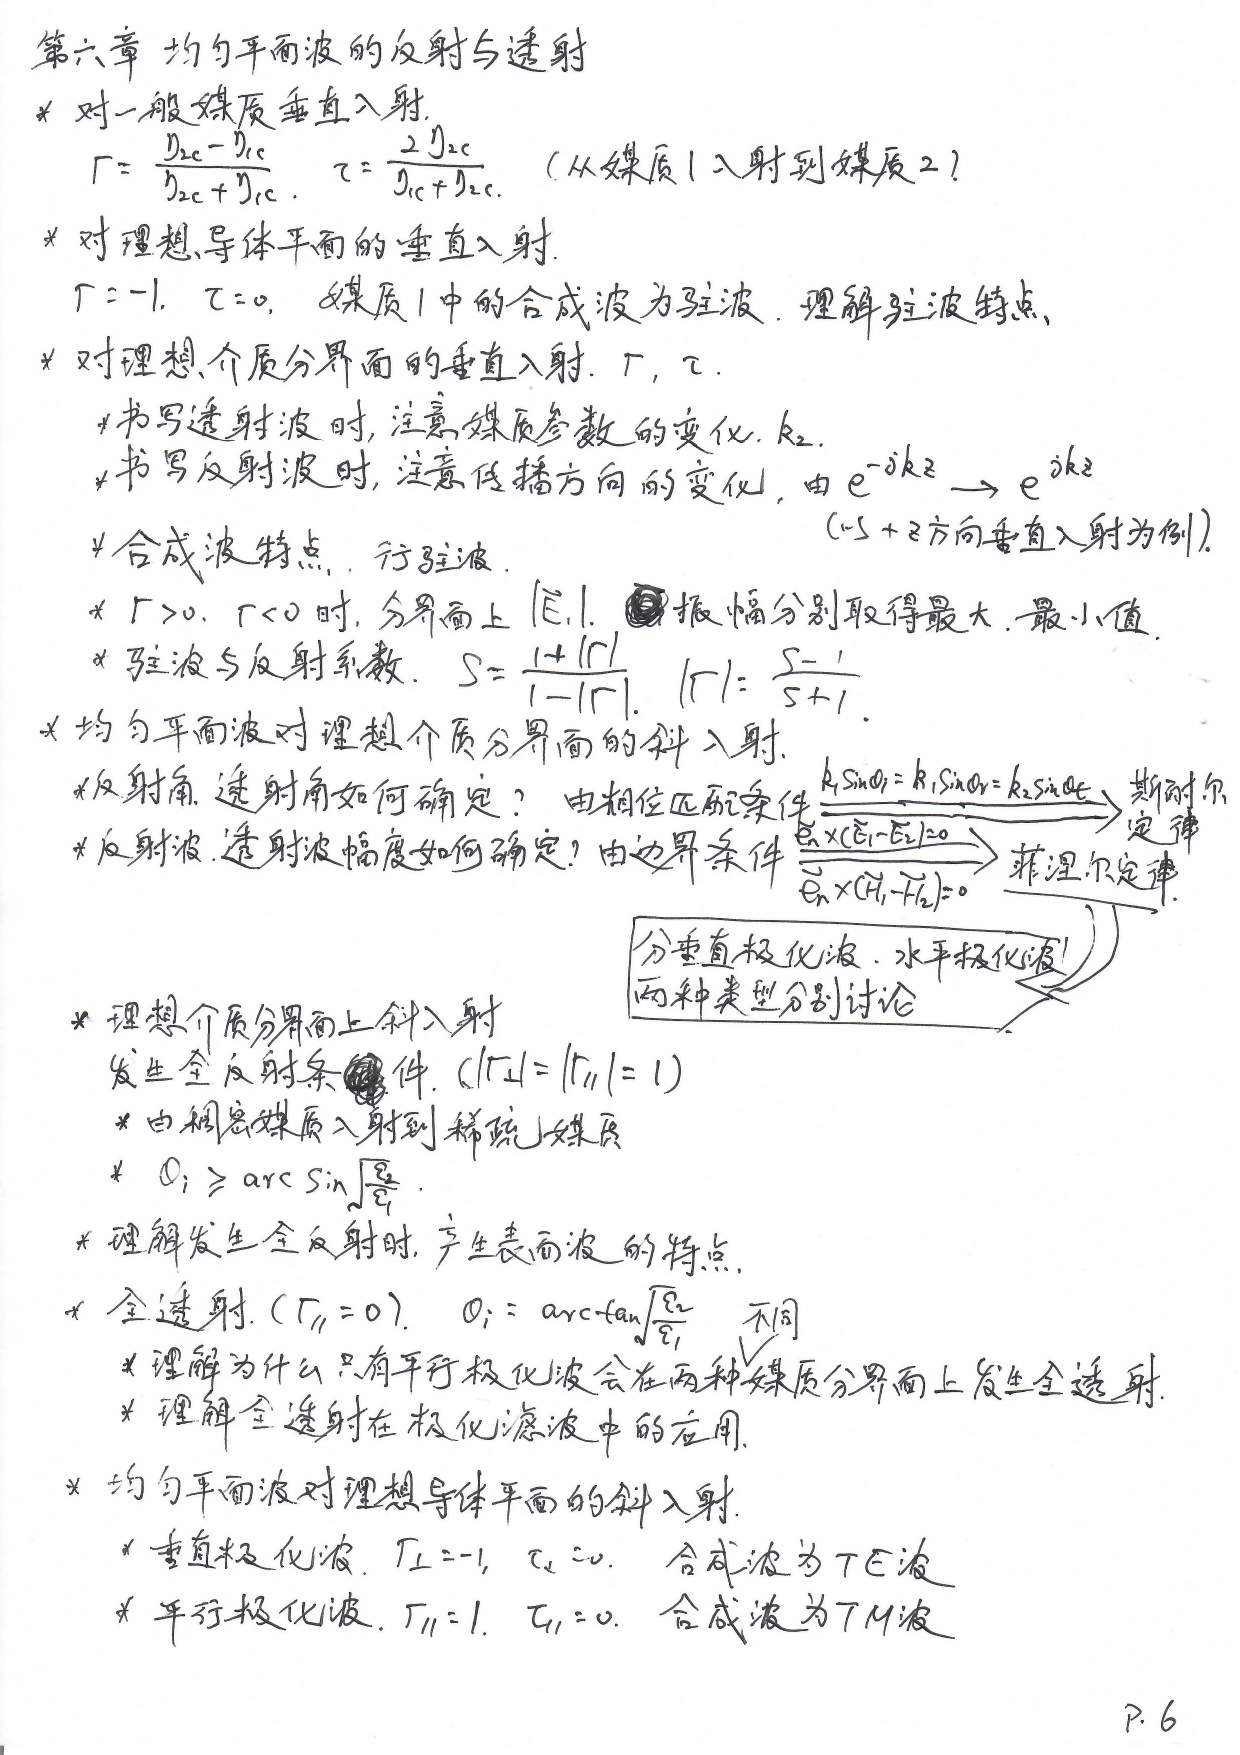 第六章 均匀平面波的反射与透射
* 对一般媒质垂直入射.
Γ = (η2c − η1c)/(η2c + η1c). τ = 2η2c/(η1c + η2c). (从媒质1入射到媒质2)
* 对理想导体平面的垂直入射.
Γ = −1. τ = 0. 媒质1中的合成波为驻波. 理解驻波特点.
* 对理想介质分界面的垂直入射. Γ, τ.
* 书写透射波时, 注意媒质参数的变化. k₂.
* 书写反射波时, 注意传播方向的变化, 由 e^{-jkz} → e^{jkz}
(以+z方向垂直入射为例).
* 合成波特点. 行驻波.
* Γ>0. Γ<0时, 分界面上 |E₁|. 振幅分别取得最大. 最小值.
* 驻波与反射系数. S = (1+|Γ|)/(1−|Γ|). |Γ| = (S−1)/(S+1).
* 均匀平面波对理想介质分界面的斜入射.
* 反射角. 透射角如何确定? 由相位匹配条件 k₁sinθi = k₁sinθr = k₂sinθt ⟹ 斯耐尔定律
* 反射波. 透射波幅度如何确定? 由边界条件 e⃗n×(E⃗₁−E⃗₂)=0 e⃗n×(H⃗₁−H⃗₂)=0 ⟹ 菲涅尔定律.
分垂直极化波. 水平极化波
两种类型分别讨论
* 理想介质分界面上斜入射
发生全反射条件. (|Γ⊥| = |Γ∥| = 1)
* 由稠密媒质入射到稀疏媒质
* θi ≥ arc sin√(ε₂/ε₁).
* 理解发生全反射时, 产生表面波的特点.
* 全透射. (Γ∥ = 0). θi = arctan√(ε₂/ε₁)
不同
* 理解为什么只有平行极化波会在两种媒质分界面上发生全透射.
* 理解全透射在极化滤波中的应用.
* 均匀平面波对理想导体平面的斜入射.
* 垂直极化波. Γ⊥ = −1, τ⊥ = 0. 合成波为TE波
* 平行极化波. Γ∥ = 1. τ∥ = 0. 合成波为TM波
P. 6